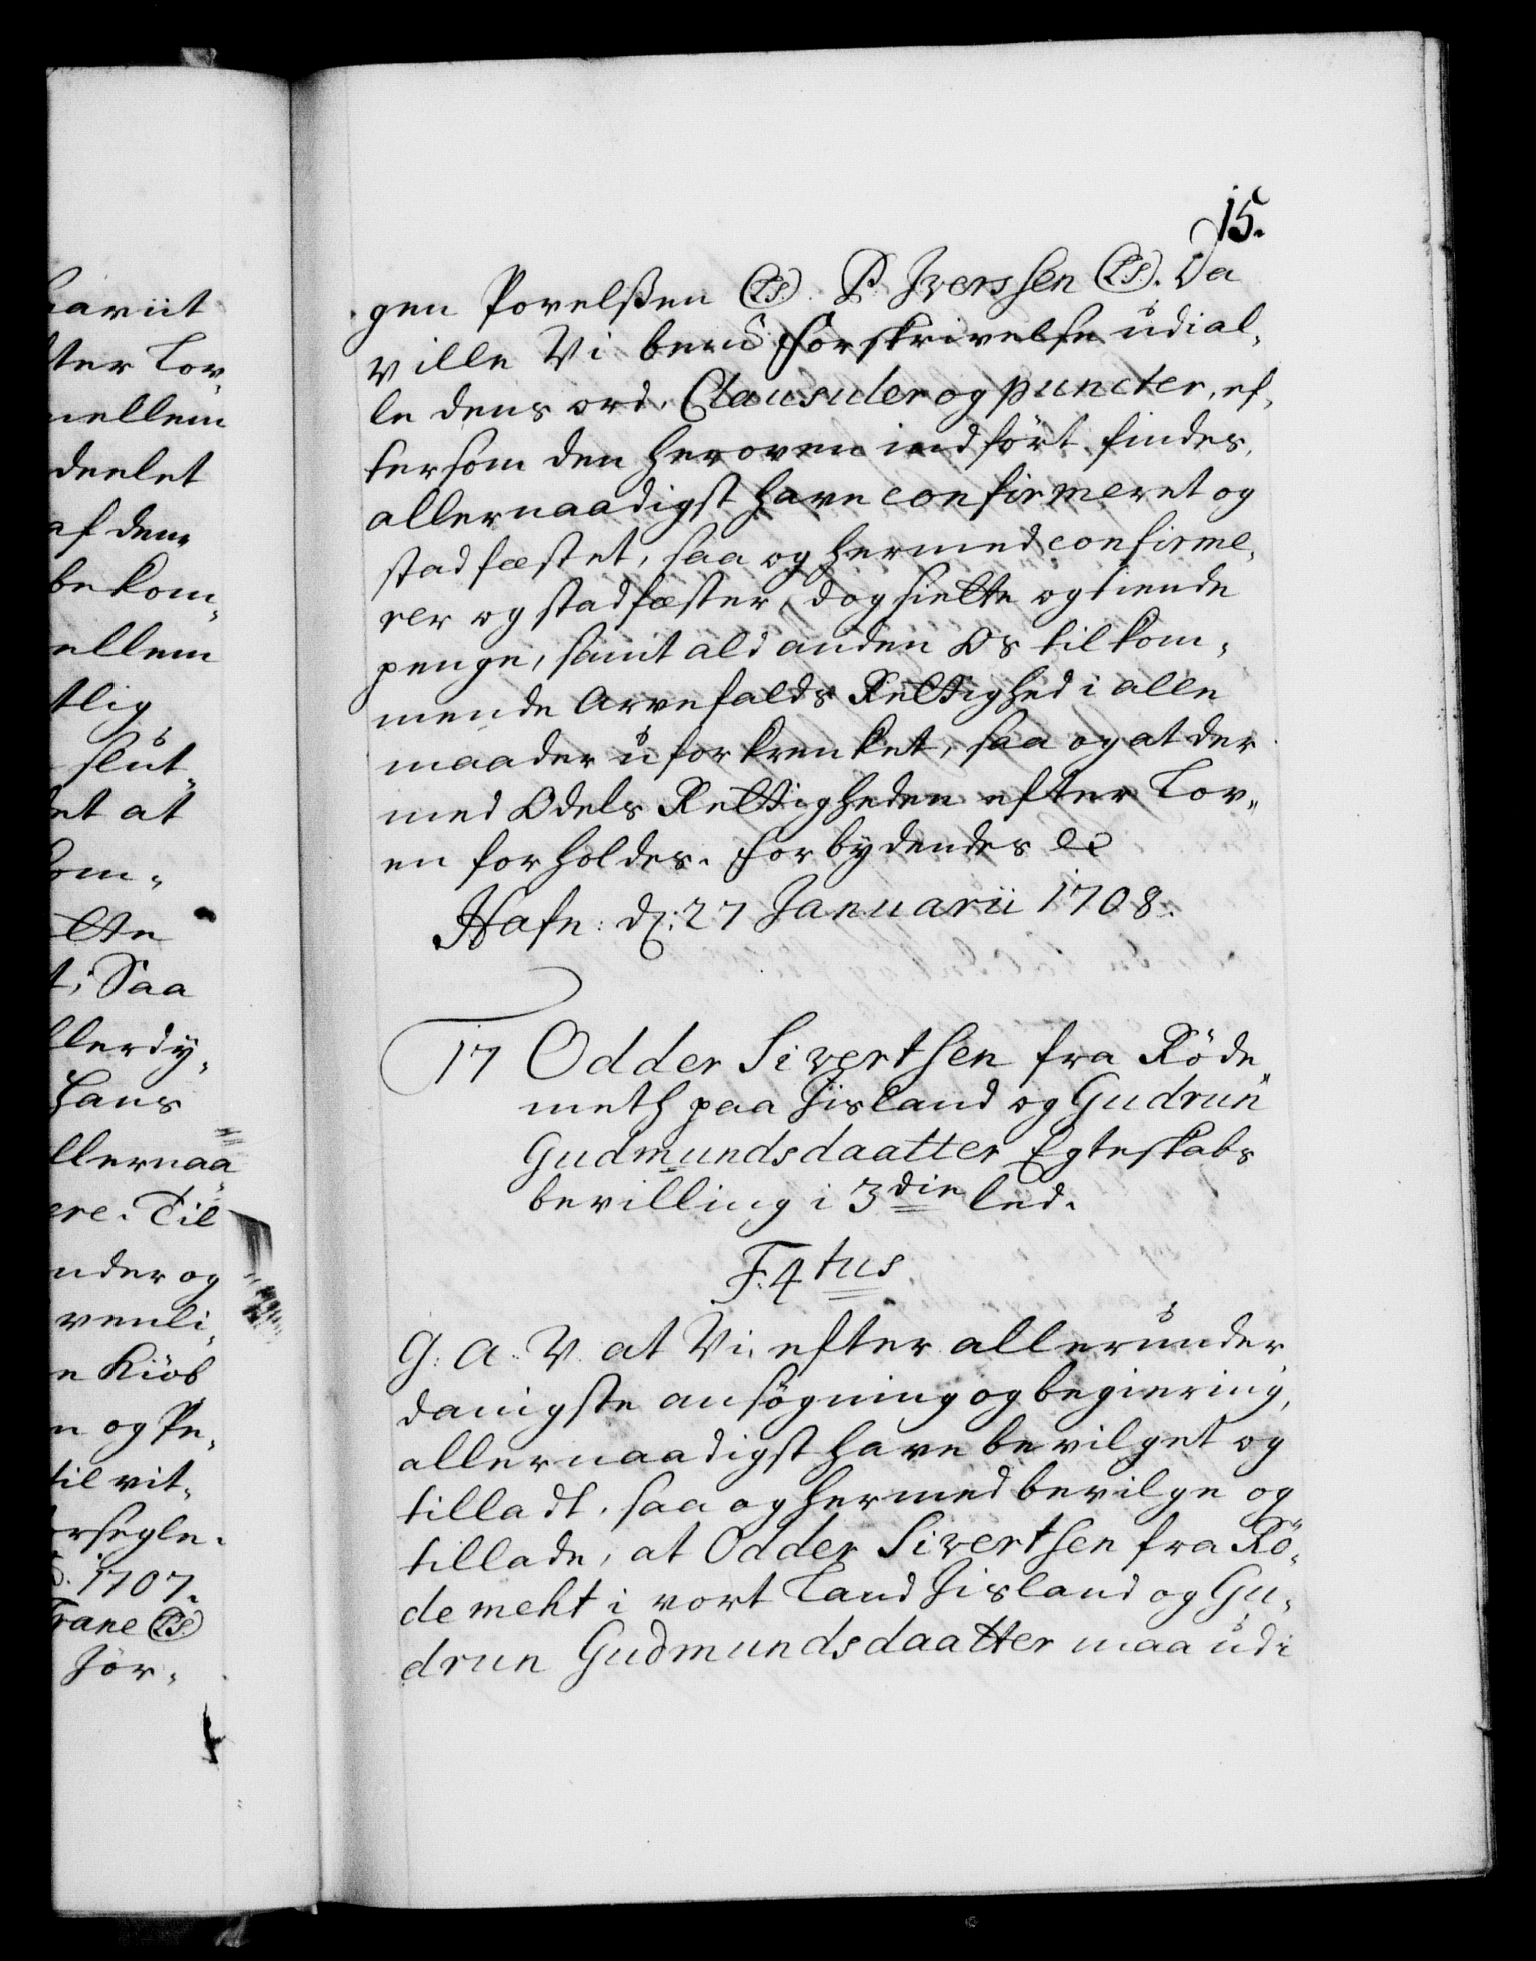 15.
gen Povelßen (LS). P. Iverssen (LS). Da
ville Vi bem.te Forskrivelse udi al,
le dens ord, Clausuler og puncter, ef,
tersom den heroven indført findes,
allernaadigst have confirmeret og
stadfæstet, saa og hermed confirme,
rer og stadfæster, dog siette og tiende
penge, samt ald anden Os tilkom,
mende Arvefalds Rettighed i alle
maader uforkrenket, saa og at der
med Odels Rettigheden efter Lov,
en forholdes. Forbydendes &c
Hafn: d: 27 Januarii 1708.
17 Odder Sivertsen fra Røde,
meth paa Iisland og Gudrun
Gudmundsdaatter Egteskabs
bevilling i 3die led.
F. 4tus
G: A: V. at Vi efter allerunder
danigste ansøgning og begiering,
allernaadigst have bevilget og
tilladt, saa og hermed bevilge og
tillade, at Odder Sivertsen fra Rø,
demeht i vort Land Iisland og Gu,
drun Gudmundsdaatter maa udi
havüt
ter Lov,
mellem
deelet
af dem
bekom,
ellem
tlig
slut,
et at
kom,
tte
t, Saa
llerdy,
Hans
llernaa,
ere. Til
nder og
venli,
n Kiøb
n og Pe,
til vit,
rsegle.
1707.
Trane (LS)
Jør,